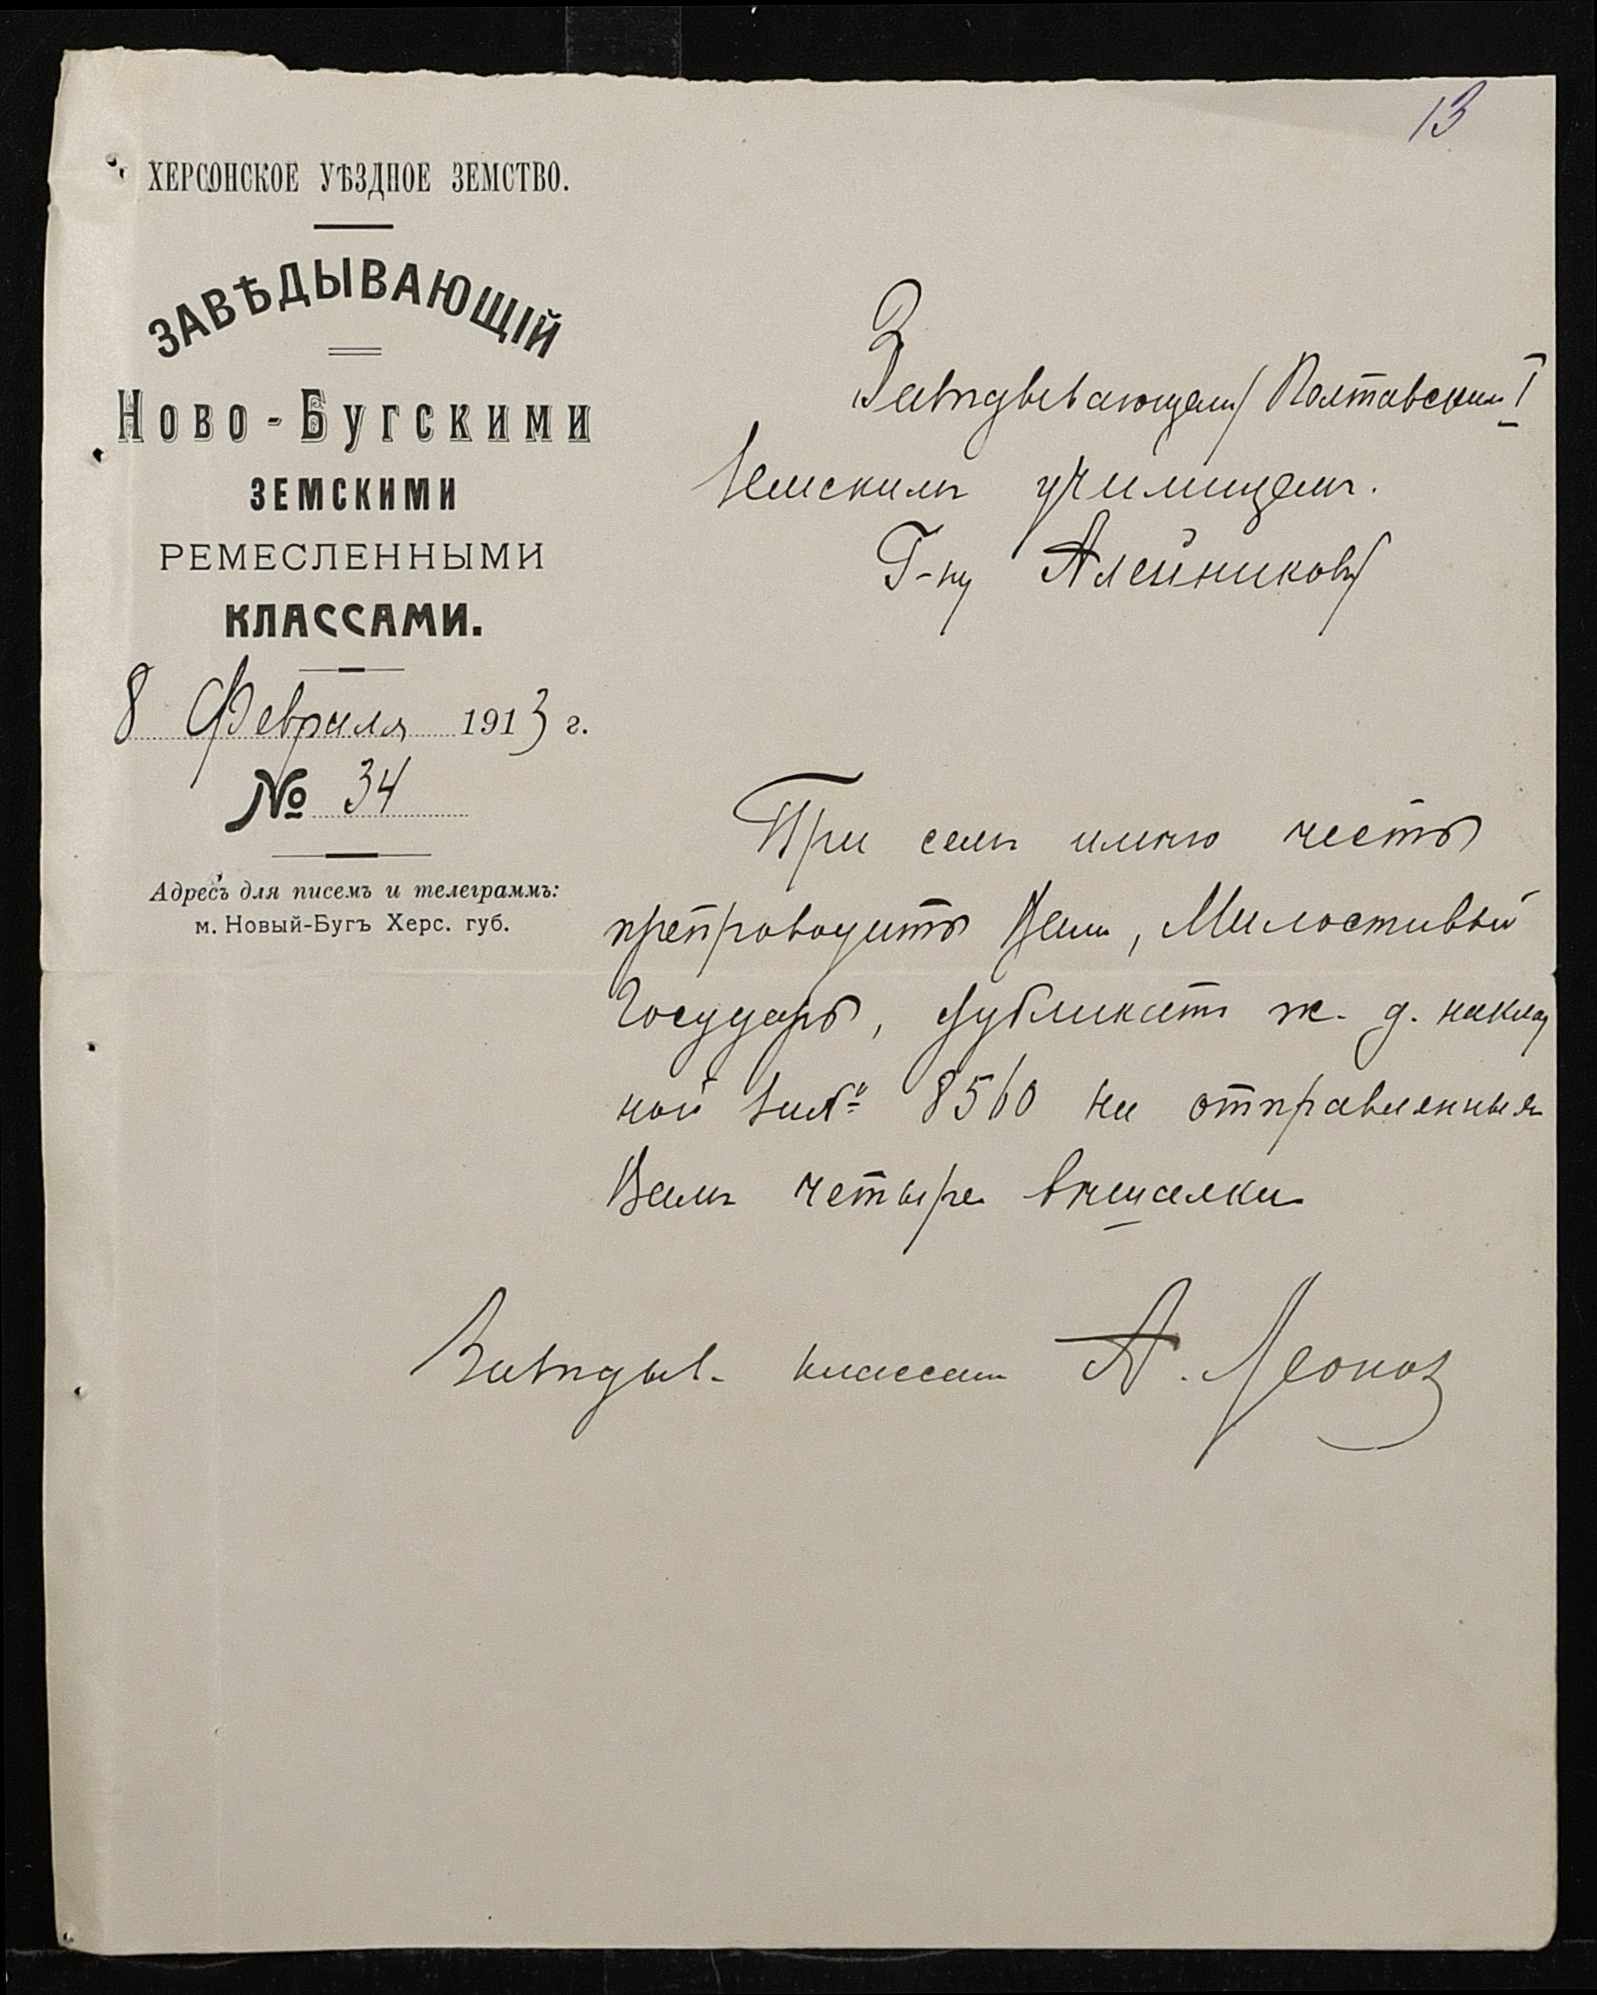 13
ХЕРСОНСКОЕ УѢЗДНОЕ ЗЕМСТВО.
ЗАВѢДЫВАЮЩІЙ
Ново-Бугскими
ЗЕМСКИМИ
РЕМЕСЛЕННЫМИ
КЛАССАМИ.
8 Февраля 1913 г.
№ 34
Адресъ для писемъ и телеграммъ:
м. Новый-Бугъ Херс. губ.
Завѣдывающему Полтавским I
Земскимъ училищемъ.
Г-ну Алейникову
При семъ имѣю честь
препроводить Вам, Милостивый
Государь, дубликатъ ж. д. наклад
ной за № 8560 на отправленныя
Вамъ четыре вѣшалки
Завѣдыв. классам А. Леонов